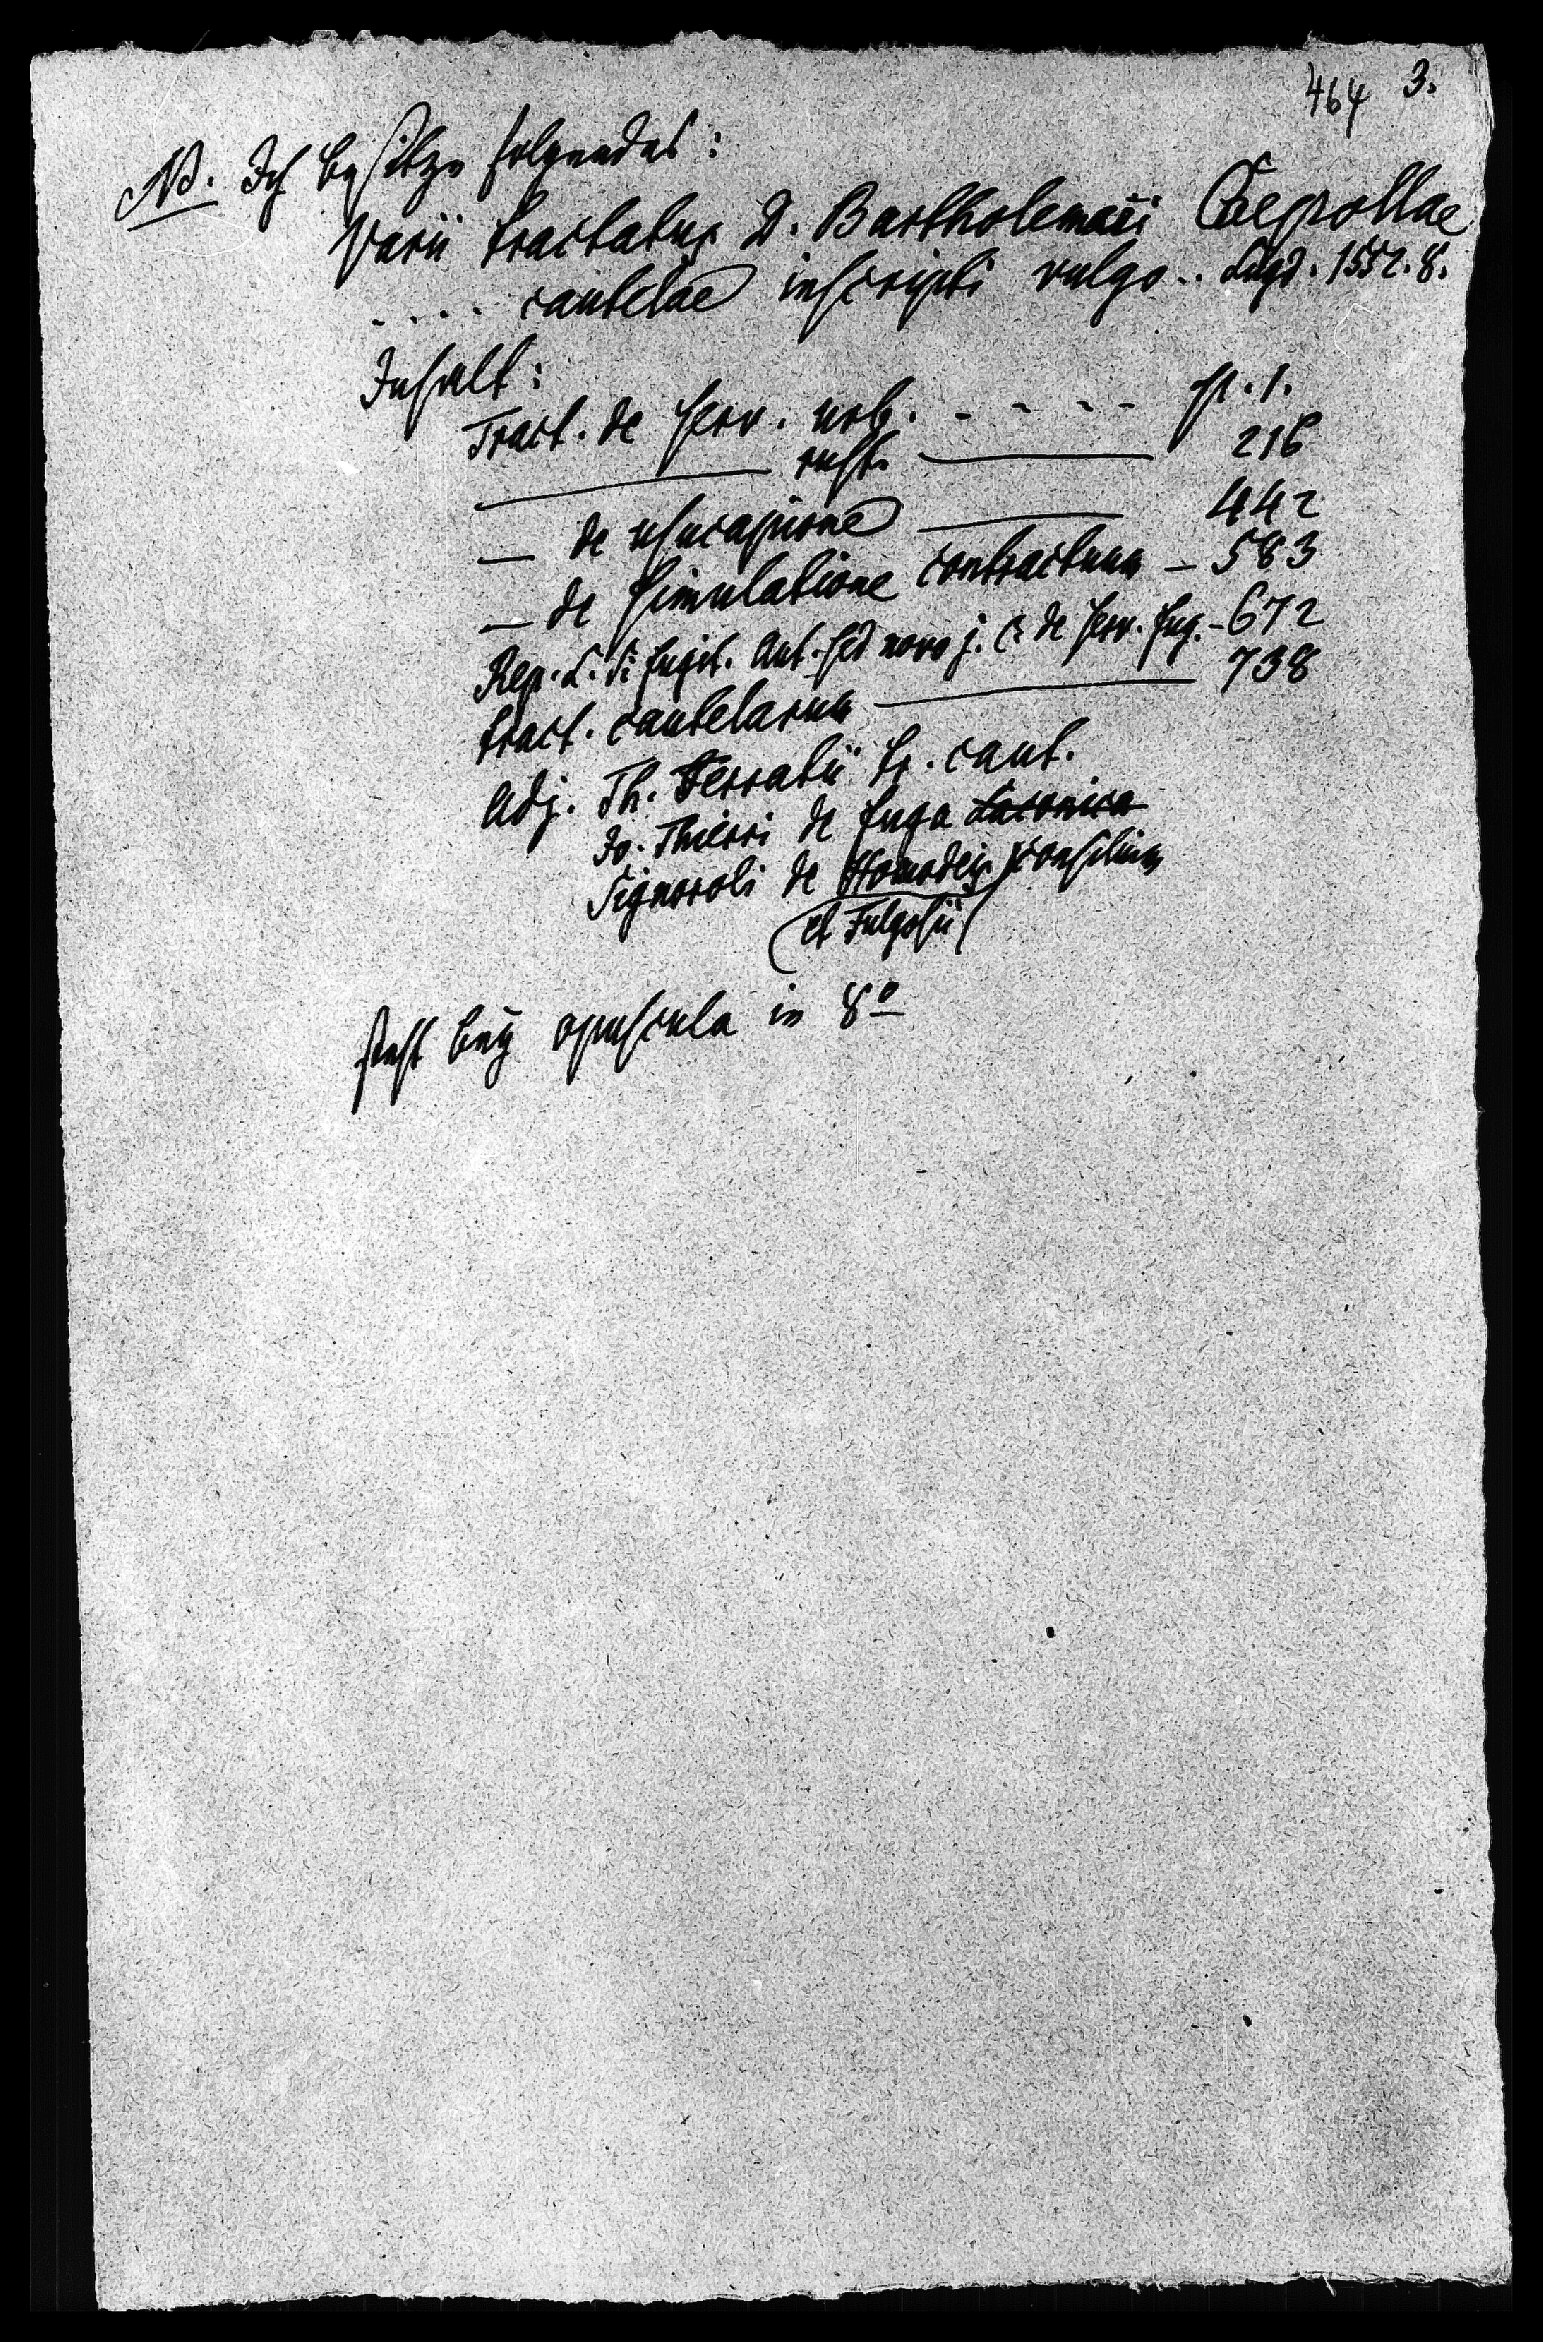 464 3.
NB. Ich besitze folgendes:
Varii tractatus D. Bartholemaei Caepollae
. . . . cautelae inscripti vulgo .. Lugd. 1552. 8.
Inhalt:
Tract. de serv. urb. - - - - p. 1.
——— rust. ——— 216
— de usucapione ——— 442
— de simulatione contractuum — 583
Rep. L. si fugit. Aut. sed novo j. C. de serv. fug. - 672
tract. cautelarum ——— 738
Adj. Th. Ferratii tr. caut.
Jo. Thierri de fuga Laconica
Signoroli de Homodeis consilium
et Fulgosii
steht bey opuscula in 8º